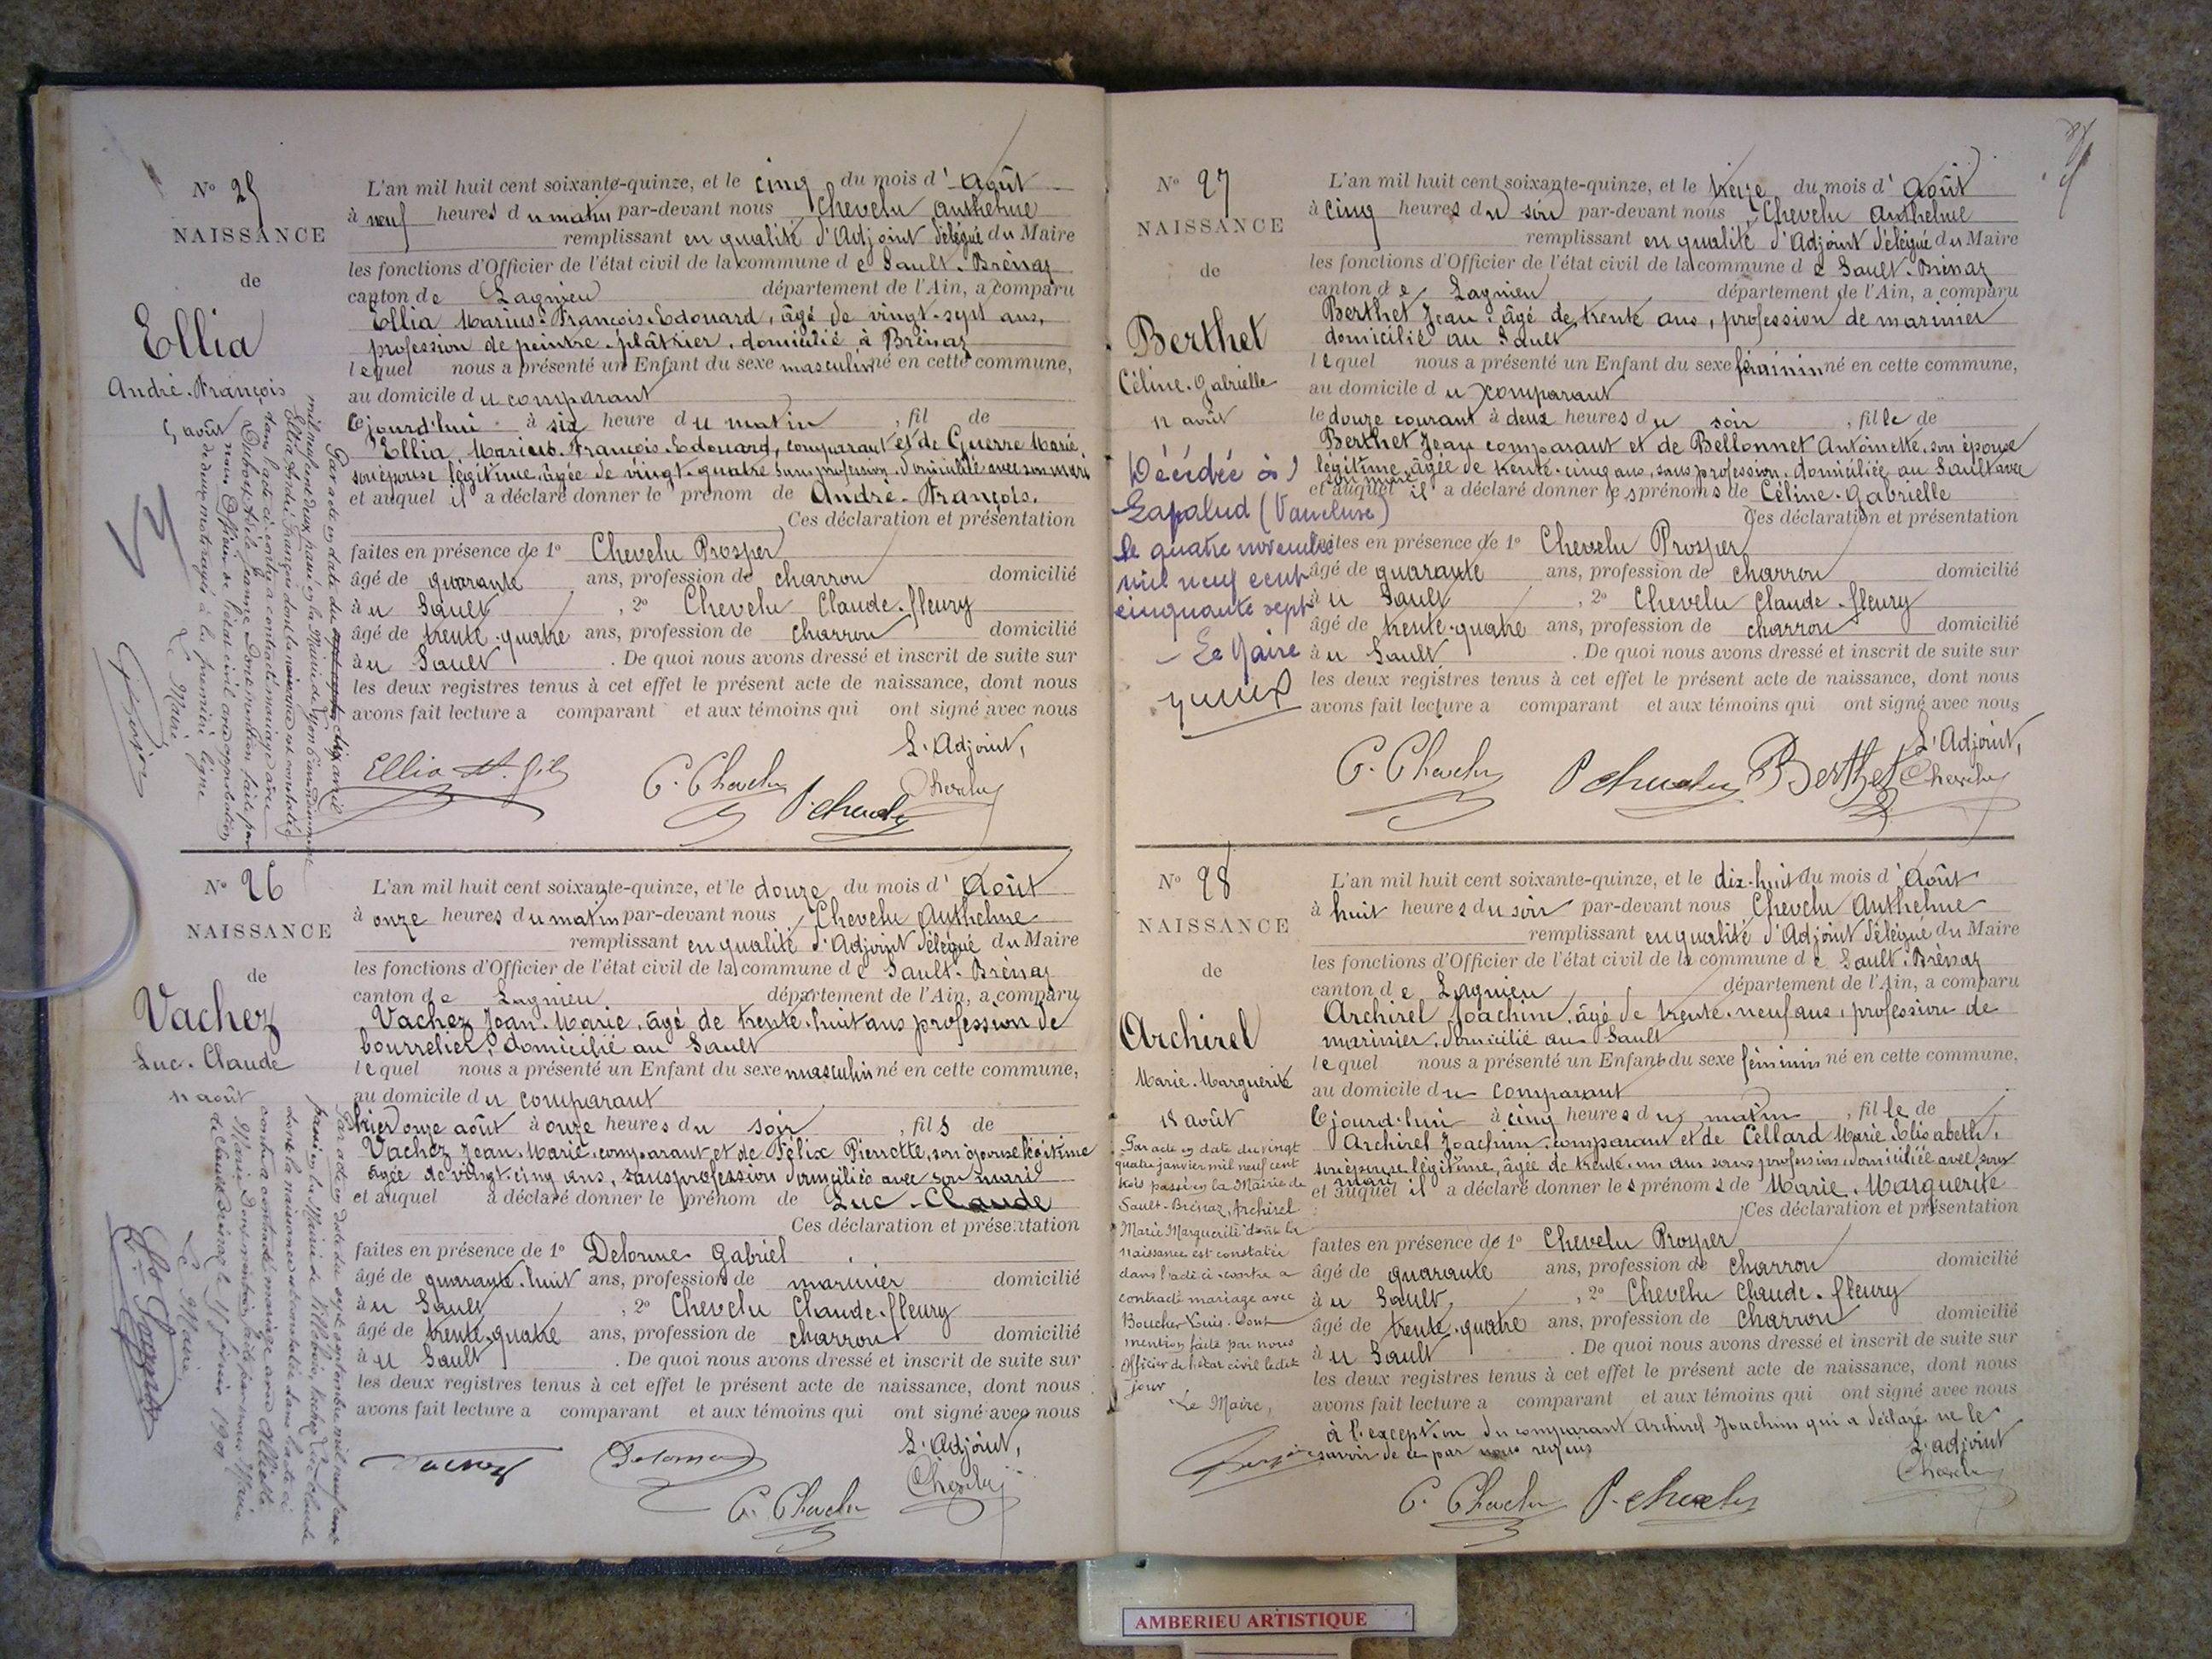 N° 25
NAISSANCE
de
Ellia
André-François
5 août
L'an mil huit cent soixante-quinze, et le cinq du mois d'Août
à neuf heures du matin par-devant nous Chevelu Anthelme
remplissant en qualité d'Adjoint délégué du Maire
les fonctions d'Officier de l'état civil de la commune de Sault-Brénaz
canton de Lagnieu département de l'Ain, a comparu
Ellia Marius-François-Edouard, âgé de vingt-sept ans,
profession de peintre-plâtrier, domicilié à Brénaz
lequel nous a présenté un Enfant du sexe masculin né en cette commune,
au domicile du comparant
cejourd'hui à six heure du matin, fil de
Ellia Marius-François-Edouard, comparant et de Guerre Marie,
son épouse légitime, âgée de vingt-quatre sans profession domiciliée avec son mari
et auquel il a déclaré donner le prénom de André-François.
Ces déclaration et présentation
faites en présence de 1° Chevelu Prosper
âgé de quarante ans, profession de charron domicilié
à u Sault, 2° Chevelu Claude-fleury
âgé de trente-quatre ans, profession de charron domicilié
à u Sault. De quoi nous avons dressé et inscrit de suite sur
les deux registres tenus à cet effet le présent acte de naissance, dont nous
avons fait lecture a comparant et aux témoins qui ont signé avec nous
L'Adjoint,
C. Chevelu
P. Chevelu
Chevelu
Le Maire
N° 26
NAISSANCE
de
Vachez
Luc-Claude
11 août
L'an mil huit cent soixante-quinze, et le douze du mois d'Août
à onze heures du matin par-devant nous Chevelu Anthelme
remplissant en qualité d'Adjoint délégué du Maire
les fonctions d'Officier de l'état civil de la commune de Sault-Brénaz
canton de Lagnieu département de l'Ain, a comparu
Vachez Jean-Marie, âgé de trente-huit ans profession de
bourrelier, domicilié au Sault
lequel nous a présenté un Enfant du sexe masculin né en cette commune,
au domicile du comparant
hier onze août à onze heures du soir, fils de
Vachez Jean-Marie, comparant et de Félix Pierrette, son épouse légitime
âgée de vingt-cinq ans, sans profession domiciliée avec son mari
et auquel a déclaré donner le prénom de Luc-Claude
Ces déclaration et présentation
faites en présence de 1° Delorme Gabriel
âgé de quarante-huit ans, profession de marinier domicilié
à u Sault, 2° Chevelu Claude-fleury
âgé de trente-quatre ans, profession de charron domicilié
à u Sault. De quoi nous avons dressé et inscrit de suite sur
les deux registres tenus à cet effet le présent acte de naissance, dont nous
avons fait lecture a comparant et aux témoins qui ont signé avec nous
L'Adjoint,
Vachez
Delorme
C. Chevelu
Chevelu
Le Maire
N° 27
NAISSANCE
de
Berthet
Céline-Gabrielle
12 août
Décédée à
Lapalud (Vaucluse)
le quatre novembre
mil neuf cent
cinquante sept
Le Maire
L'an mil huit cent soixante-quinze, et le treize du mois d'Août
à cinq heures du soir par-devant nous, Chevelu Anthelme
remplissant en qualité d'Adjoint délégué du Maire
les fonctions d'Officier de l'état civil de la commune de Sault-Brénaz
canton de Lagnieu département de l'Ain, a comparu
Berthet Jean: âgé de trente ans, profession de marinier
domicilié au Sault
lequel nous a présenté un Enfant du sexe féminin né en cette commune,
au domicile du comparant
le douze courant à deux heures du soir, fille de
Berthet Jean comparant et de Bellonnet Antoinette, son épouse
légitime, âgée de trente-cinq ans, sans profession, domiciliée au Sault avec
son mari
et auquel il a déclaré donner les prénoms de Céline-Gabrielle
Ces déclaration et présentation
faites en présence de 1° Chevelu Prosper
âgé de quarante ans, profession de charron domicilié
à u Sault, 2° Chevelu Claude-fleury
âgé de trente-quatre ans, profession de charron domicilié
à u Sault. De quoi nous avons dressé et inscrit de suite sur
les deux registres tenus à cet effet le présent acte de naissance, dont nous
avons fait lecture a comparant et aux témoins qui ont signé avec nous
L'Adjoint,
C. Chevelu
P Chevelu
Berthet
Chevelu
N° 28
NAISSANCE
de
Archirel
Marie-Marguerite
18 août
Par acte en date du vingt
quatre janvier mil neuf cent
trois passé en la Mairie de
Sault-Brénaz, Archirel
Marie Marguerite dont la
naissance est constatée
dans l'acte ci-contre a
contracté mariage avec
Boucher Louis. Dont
mention faite par nous
Officier de l'état civil ledit
jour
Le Maire,
L'an mil huit cent soixante-quinze, et le dix-huit du mois d'Août
à huit heures du soir par-devant nous Chevelu Anthelme
remplissant en qualité d'Adjoint délégué du Maire
les fonctions d'Officier de l'état civil de la commune de Sault-Brénaz
canton de Lagnieu département de l'Ain, a comparu
Archirel Joachim, âgé de trente-neuf ans, profession de
marinier, domicilié au Sault
lequel nous a présenté un Enfant du sexe féminin né en cette commune,
au domicile du comparant
cejourd'hui à cinq heures du matin, fille de
Archirel Joachim comparant et de Cellard Marie Elisabeth,
son épouse légitime, âgée de trente-un ans sans profession domiciliée avec son
mari
et auquel il a déclaré donner les prénoms de Marie-Marguerite
Ces déclaration et présentation
faites en présence de 1° Chevelu Prosper
âgé de quarante ans, profession de charron domicilié
à u Sault, 2° Chevelu Claude-fleury
âgé de trente-quatre ans, profession de charron domicilié
à u Sault. De quoi nous avons dressé et inscrit de suite sur
les deux registres tenus à cet effet le présent acte de naissance, dont nous
avons fait lecture a comparant et aux témoins qui ont signé avec nous
à l'exception du comparant Archirel Joachim qui a déclaré ne le
savoir de ce par nous requis
L'adjoint
C. Chevelu
P. Chevelu
Chevelu
AMBERIEU ARTISTIQUE